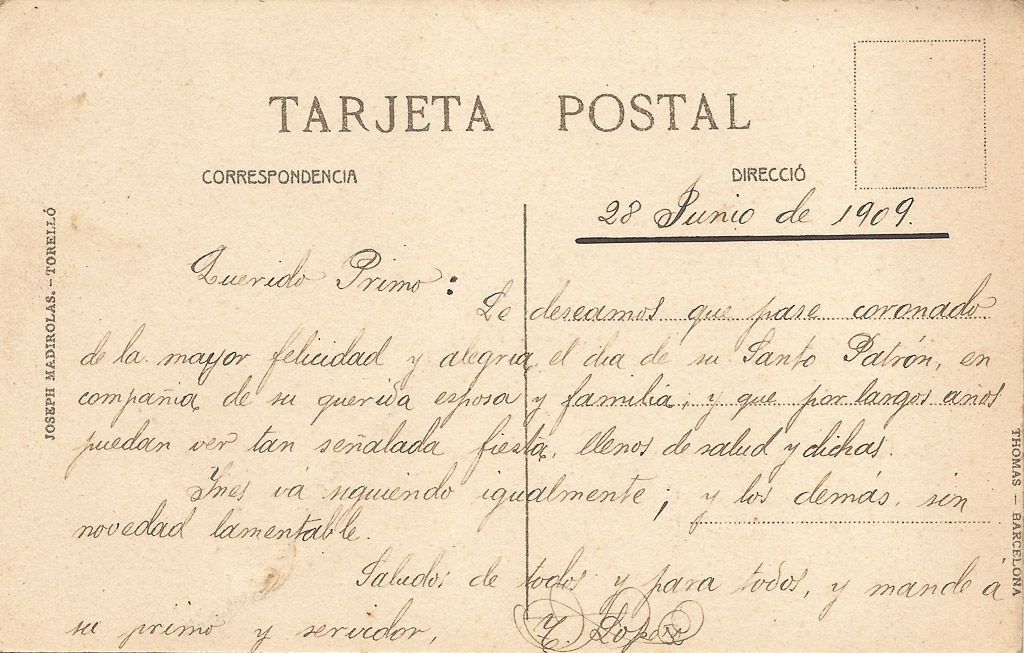 TARJETA POSTAL
CORRESPONDENCIA
DIRECCIÓ
JOSEPH MADIROLAS. - TORELLÓ
28 Junio de 1909.
Querido Primo:
Le deseamos que pase coronado
de la mayor felicidad y alegria, el dia de su Santo Patrón, en
compañia, de su querida esposa y familia, y que por largos años
puedan ver tan señalada fiesta, llenos de salud y dichas.
Ynes vá siguiendo igualmente; y los demás, sin
novedad lamentable.
Saludos de todos y para todos, y mande á
su primo y servidor,
Lopez
THOMAS - BARCELONA